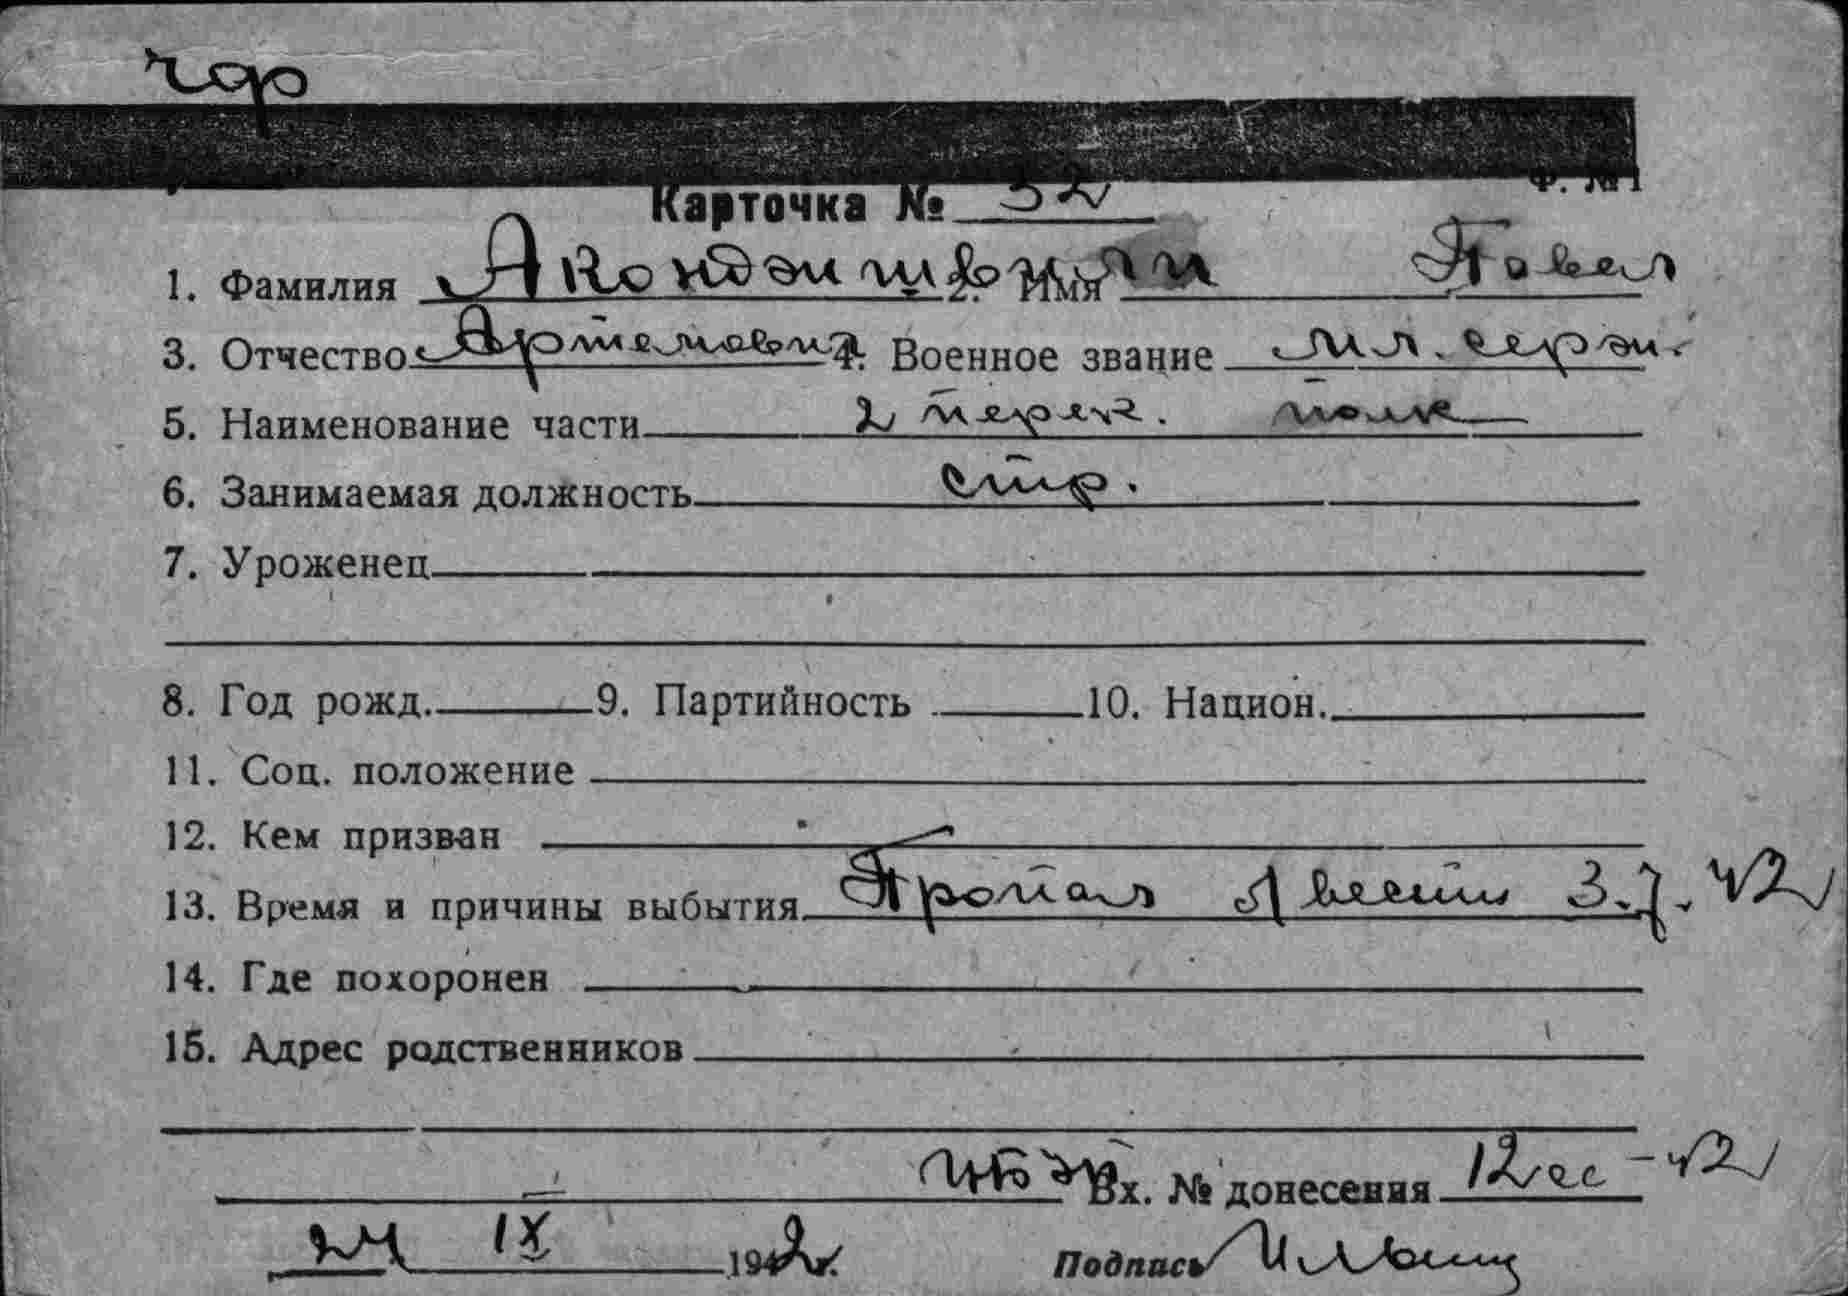 Ф. № 1
Карточка № 32
1. Фамилия Акондэишвили 2. Имя Павел
3. Отчество Артемович 4. Военное звание мл. серж.
5. Наименование части 2 перек. полк
6. Занимаемая должность стр.
7. Уроженец
8. Год рожд. 9. Партийность 10. Национ.
11. Соц. положение
12. Кем призван
13. Время и причины выбытия Пропал б/вести 3.7.42
14. Где похоронен
15. Адрес родственников
Вх. № донесения 12сс-42
24 IX 1942 г. Подпись